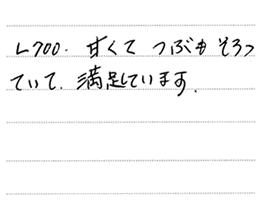 L700. 甘くて つぶも そろっ
ていて、満足しています.